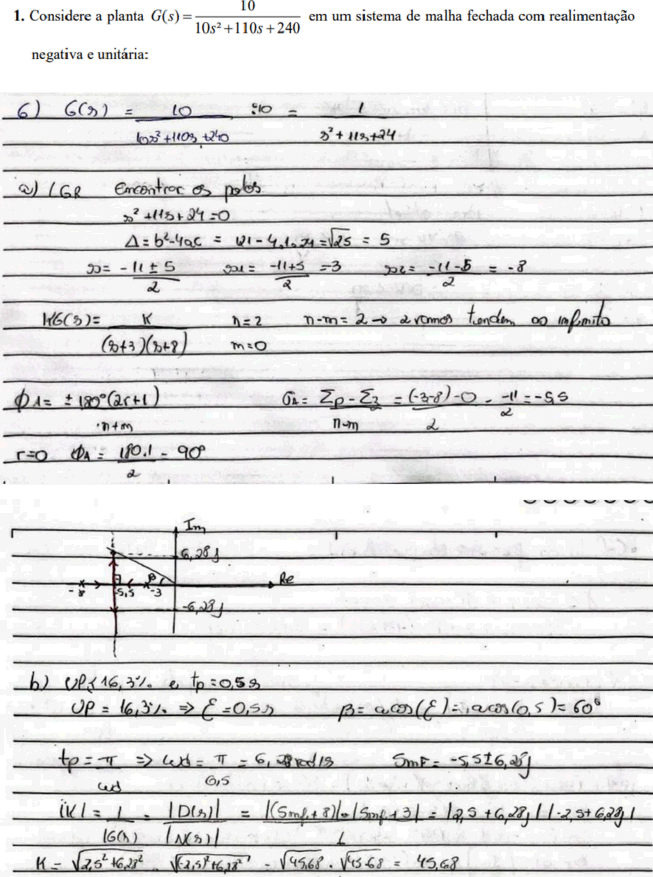 1. Considere a planta G(s) = 10 / (10s² + 110s + 240) em um sistema de malha fechada com realimentação
negativa e unitária:
6) G(s) = 10 / (10s² + 110s + 240) :10 = 1 / (s² + 11s + 24)
a) LGR Encontrar os polos
s² + 11s + 24 = 0
Δ = b² - 4ac = 121 - 4.1.24 = √25 = 5
s = (-11 ± 5) / 2 s1 = (-11+5) / 2 = -3 s2 = (-11-5) / 2 = -8
KG(s) = K / ((s+3)(s+8)) n=2 n-m = 2 → 2 ramos tendem ao infinito
m=0
ϕA = ±180°(2r+1) / (n+m) σA = (Σp - Σz) / (n-m) = ((-3-8) - 0) / 2 = -11/2 = -5,5
r=0 ϕA = 180.1 / 2 = 90°
Im
6,28j
β
Re
-8 -5,5 -3
-6,28j
b) UP ≤ 16,3% e tp = 0,5s
UP = 16,3% ⇒ ξ = 0,5 β = acos(ξ) = acos(0,5) = 60°
tp = π / ωd ⇒ ωd = π / 0,5 = 6,28 rad/s Smf = -5,5 ± 6,28j
|K| = 1 / |G(s)| = |D(s)| / |N(s)| = |(Smf + 8)| · |Smf + 3| / 1 = |2,5 + 6,28j| |-2,5 + 6,28j|
K = √(2,5² + 6,28²) · √((-2,5)² + 6,28²) = √45,68 . √45,68 = 45,68